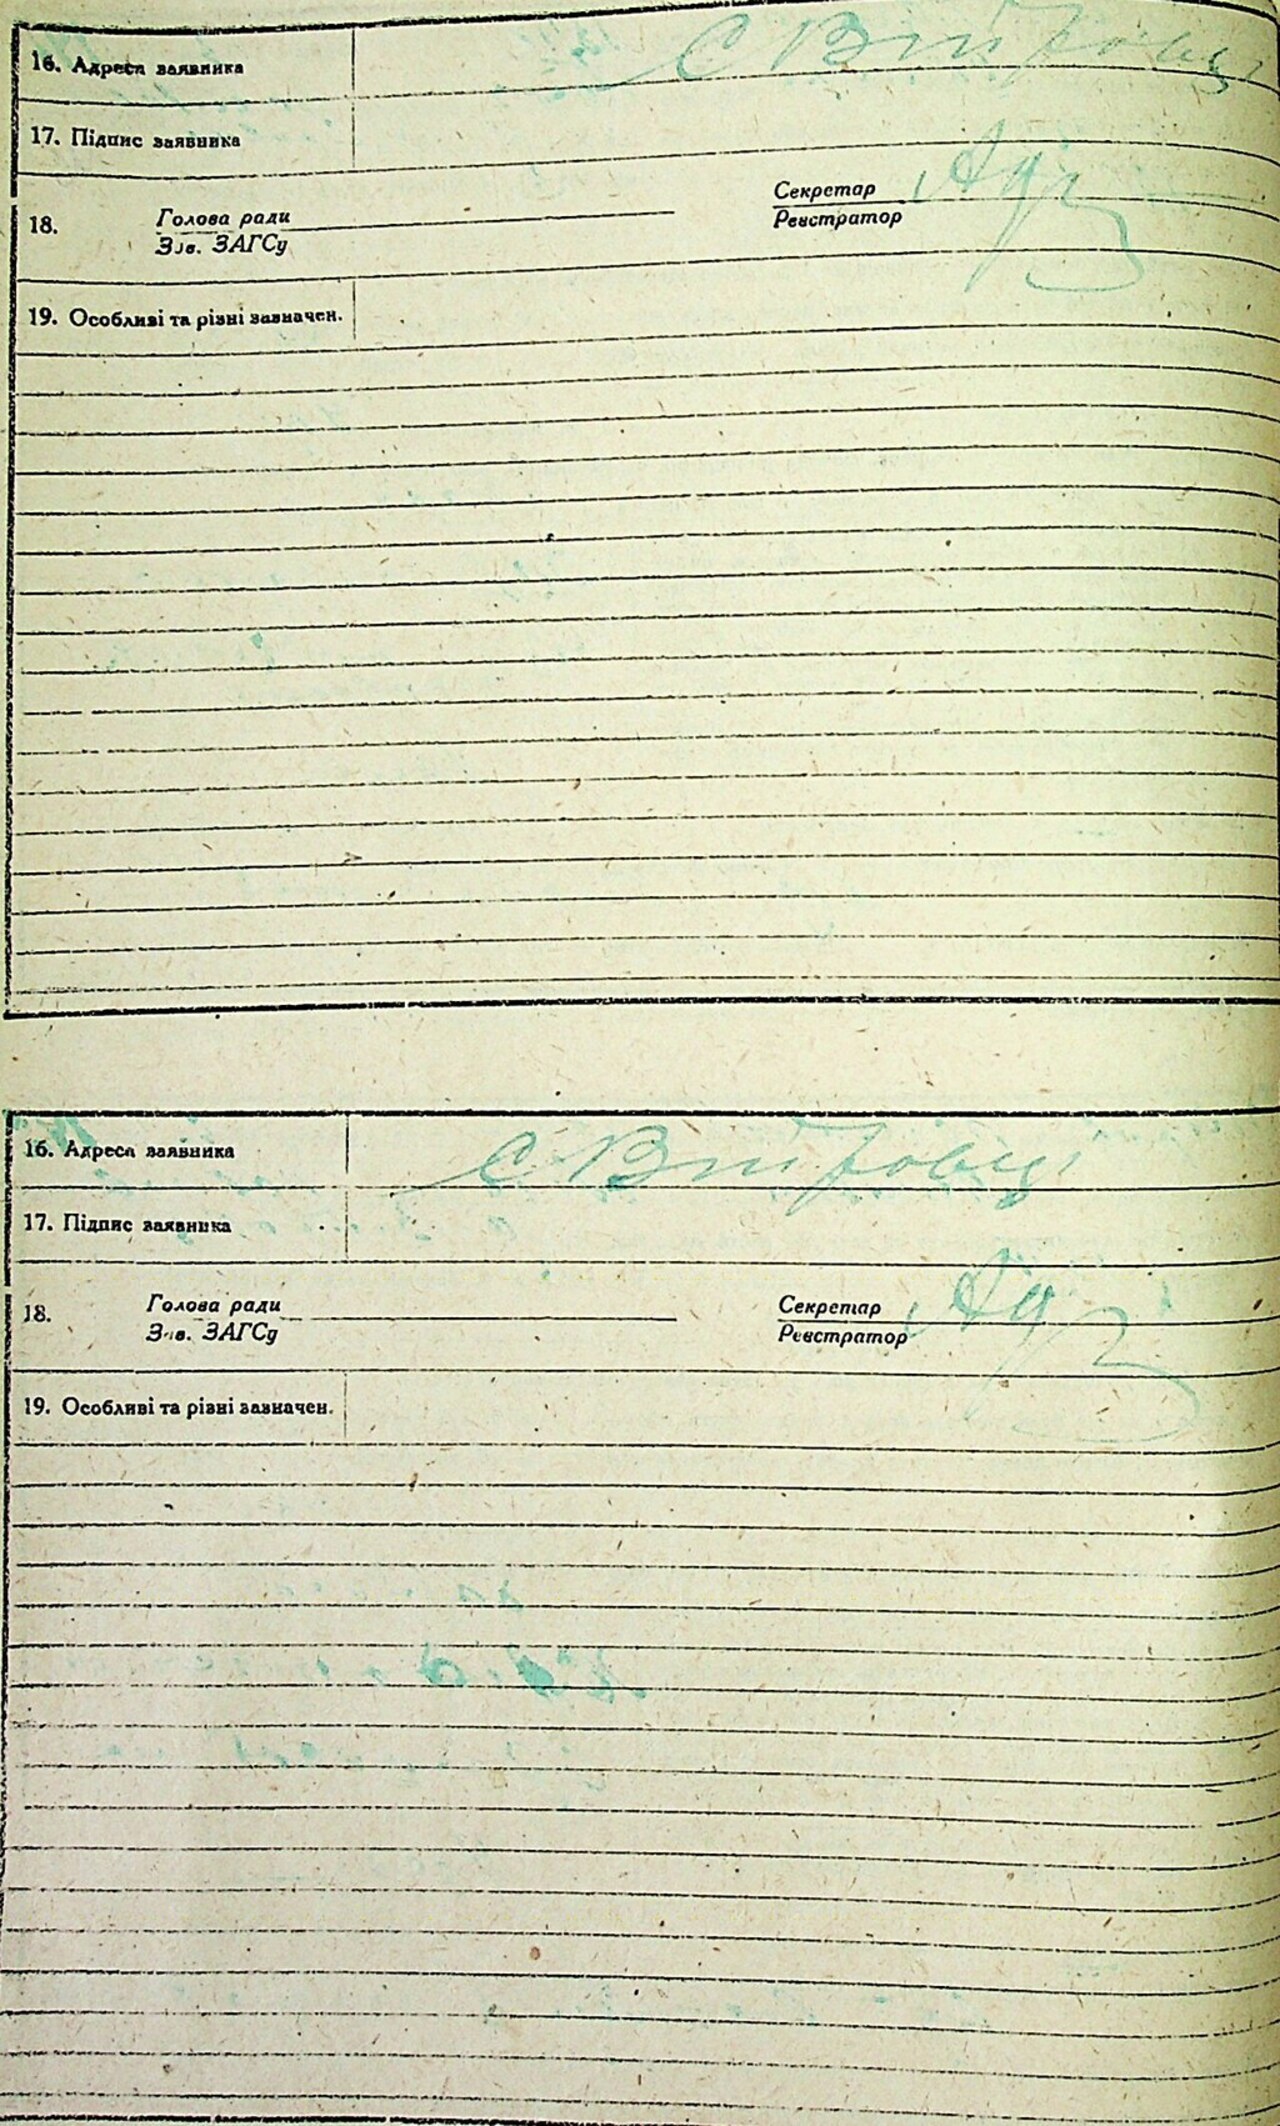 16. Адреса заявника С Вітровці
17. Підпис заявника
18. Голова ради Секретар
Зав. ЗАГСу Реєстратор
19. Особливі та різні зазначен.
16. Адреса заявника С Вітровці
17. Підпис заявника
18. Голова ради Секретар
Зав. ЗАГСу Реєстратор
19. Особливі та різні зазначен.